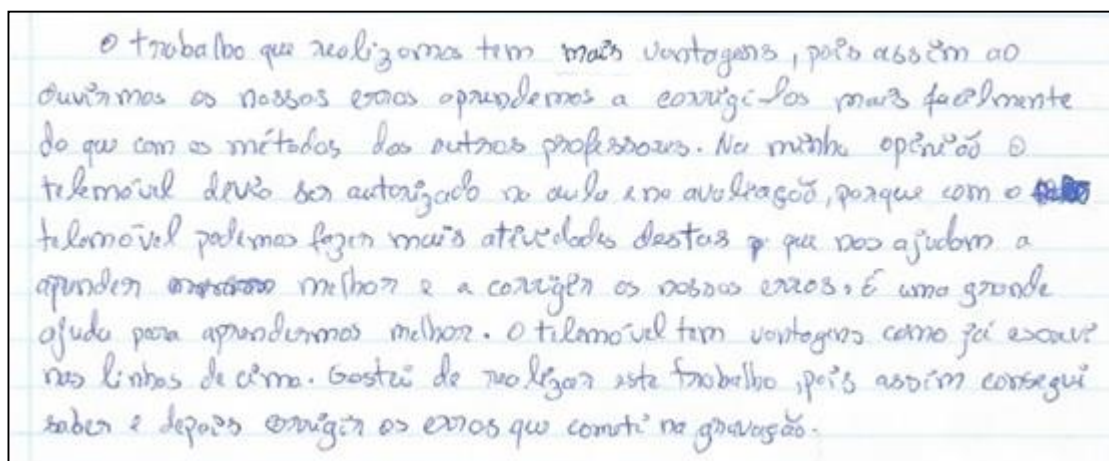 O trabalho que realizamos tem mais vantagens, pois assim ao
ouvirmos os nossos erros aprendemos a corrigi-los mais facilmente
do que com os métodos dos outros professores. Na minha opinião o
telemóvel devia ser autorizado na aula e na avaliação, porque com o
telemóvel podemos fazer mais atividades destas que nos ajudam a
aprender melhor e a corrigir os nossos erros. É uma grande
ajuda para aprendermos melhor. O telemóvel tem vantagens como já escrevi
nas linhas de cima. Gostei de realizar este trabalho, pois assim consegui
saber e depois corrigir os erros que cometi na gravação.